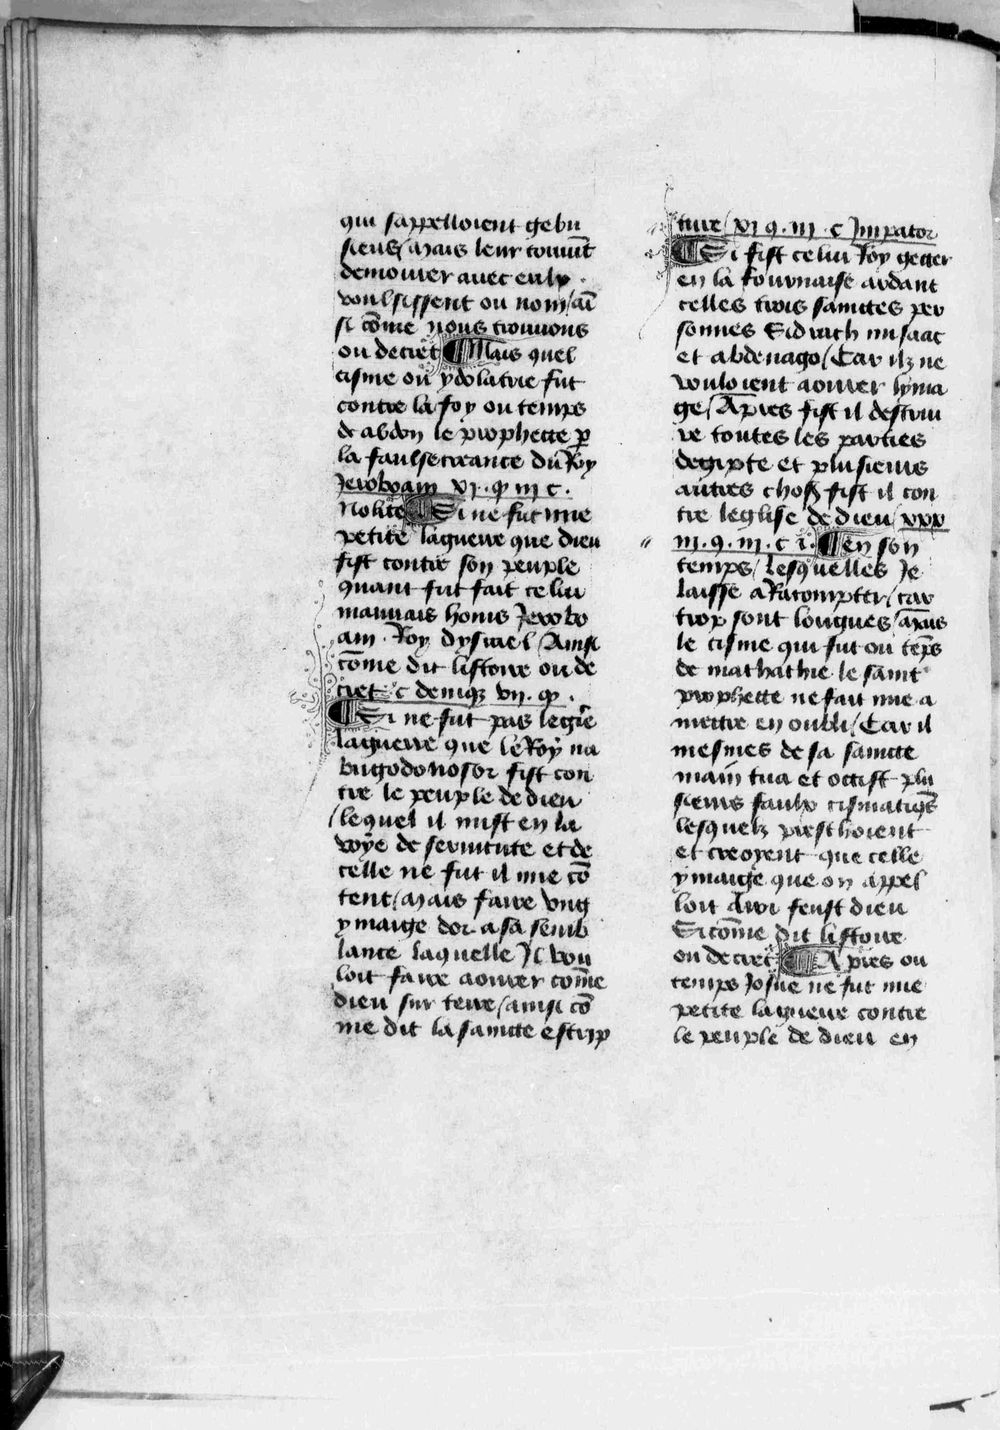 qui sappelloient gebu
siens / mais leur couuīt
demourer auec eulx .
voulsissent ou non / aī
si cōme nous trouuons
ou decret ¶ Mais quel
cisme ou ydolatrie fut
contre la foy ou temps
de abdon le prophecte ꝑ
la faulse creance du Roy
Jeroboam xj . q̄ iij c .
Nolite ¶ Si ne fut mie
petite laguerre que dieu
fist contre son peuple
quant fut fait celui
mauuais homs Jerobo
am . Roy dysrael / Ainsi
cōme dit listoire ou de
cret c deniqꝫ vij . q̄ .
¶ Si ne fut pas legiē
laguerre que le Roy na
bugodonosor fist con
tre le peuple de dieu
lequel il mist en la
voye de seruitute et de
celle ne fut il mie cō
tent / mais faire vng
ymaige dor a sa semb
lance laquelle Il vou
loit faire aourer cōme
dieu sur terre / ainsi cō
me dit la saincte escrip
ture / xj q . iij . c Impator
¶ Si fist celui Roy getter
en la fournaise ardant
celles trois sainctes per
sonnes Sidrach misaac
et abdenago / Car ilz ne
vouloient aourer lyma
ge / Apres fist il destrui
re toutes les parties
degipte et plusieurs
autres choses fist il con
tre leglise de dieu / xxx
iij . q . iij . c i . ¶ En son
temps / lesquelles Je
laisse a Racompter / car
trop sont longues / apres
le cisme qui fut ou tēps
de mathathie le saint
prophecte ne fait mie a
mettre en oubli / Car il
mesmes de sa saincte
main tua et occist plu
sieurs faulx cismatiqs
lesquelz preschoient
et creoyent que celle
ymaige que on appel
loit feust dieu
Si cōme dit listoire
ou decret ¶ Apres ou
temps Josue ne fut mie
petite laguerre contre
le peuple de dieu en